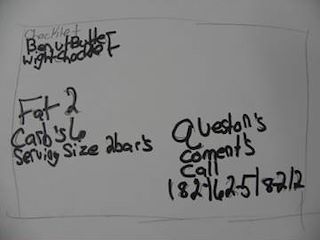 Chocklet
Benut Butter
wight chocklet
Fat 2
Carb's 6
Serving Size 2bar's
Queston's
Coment's
Call